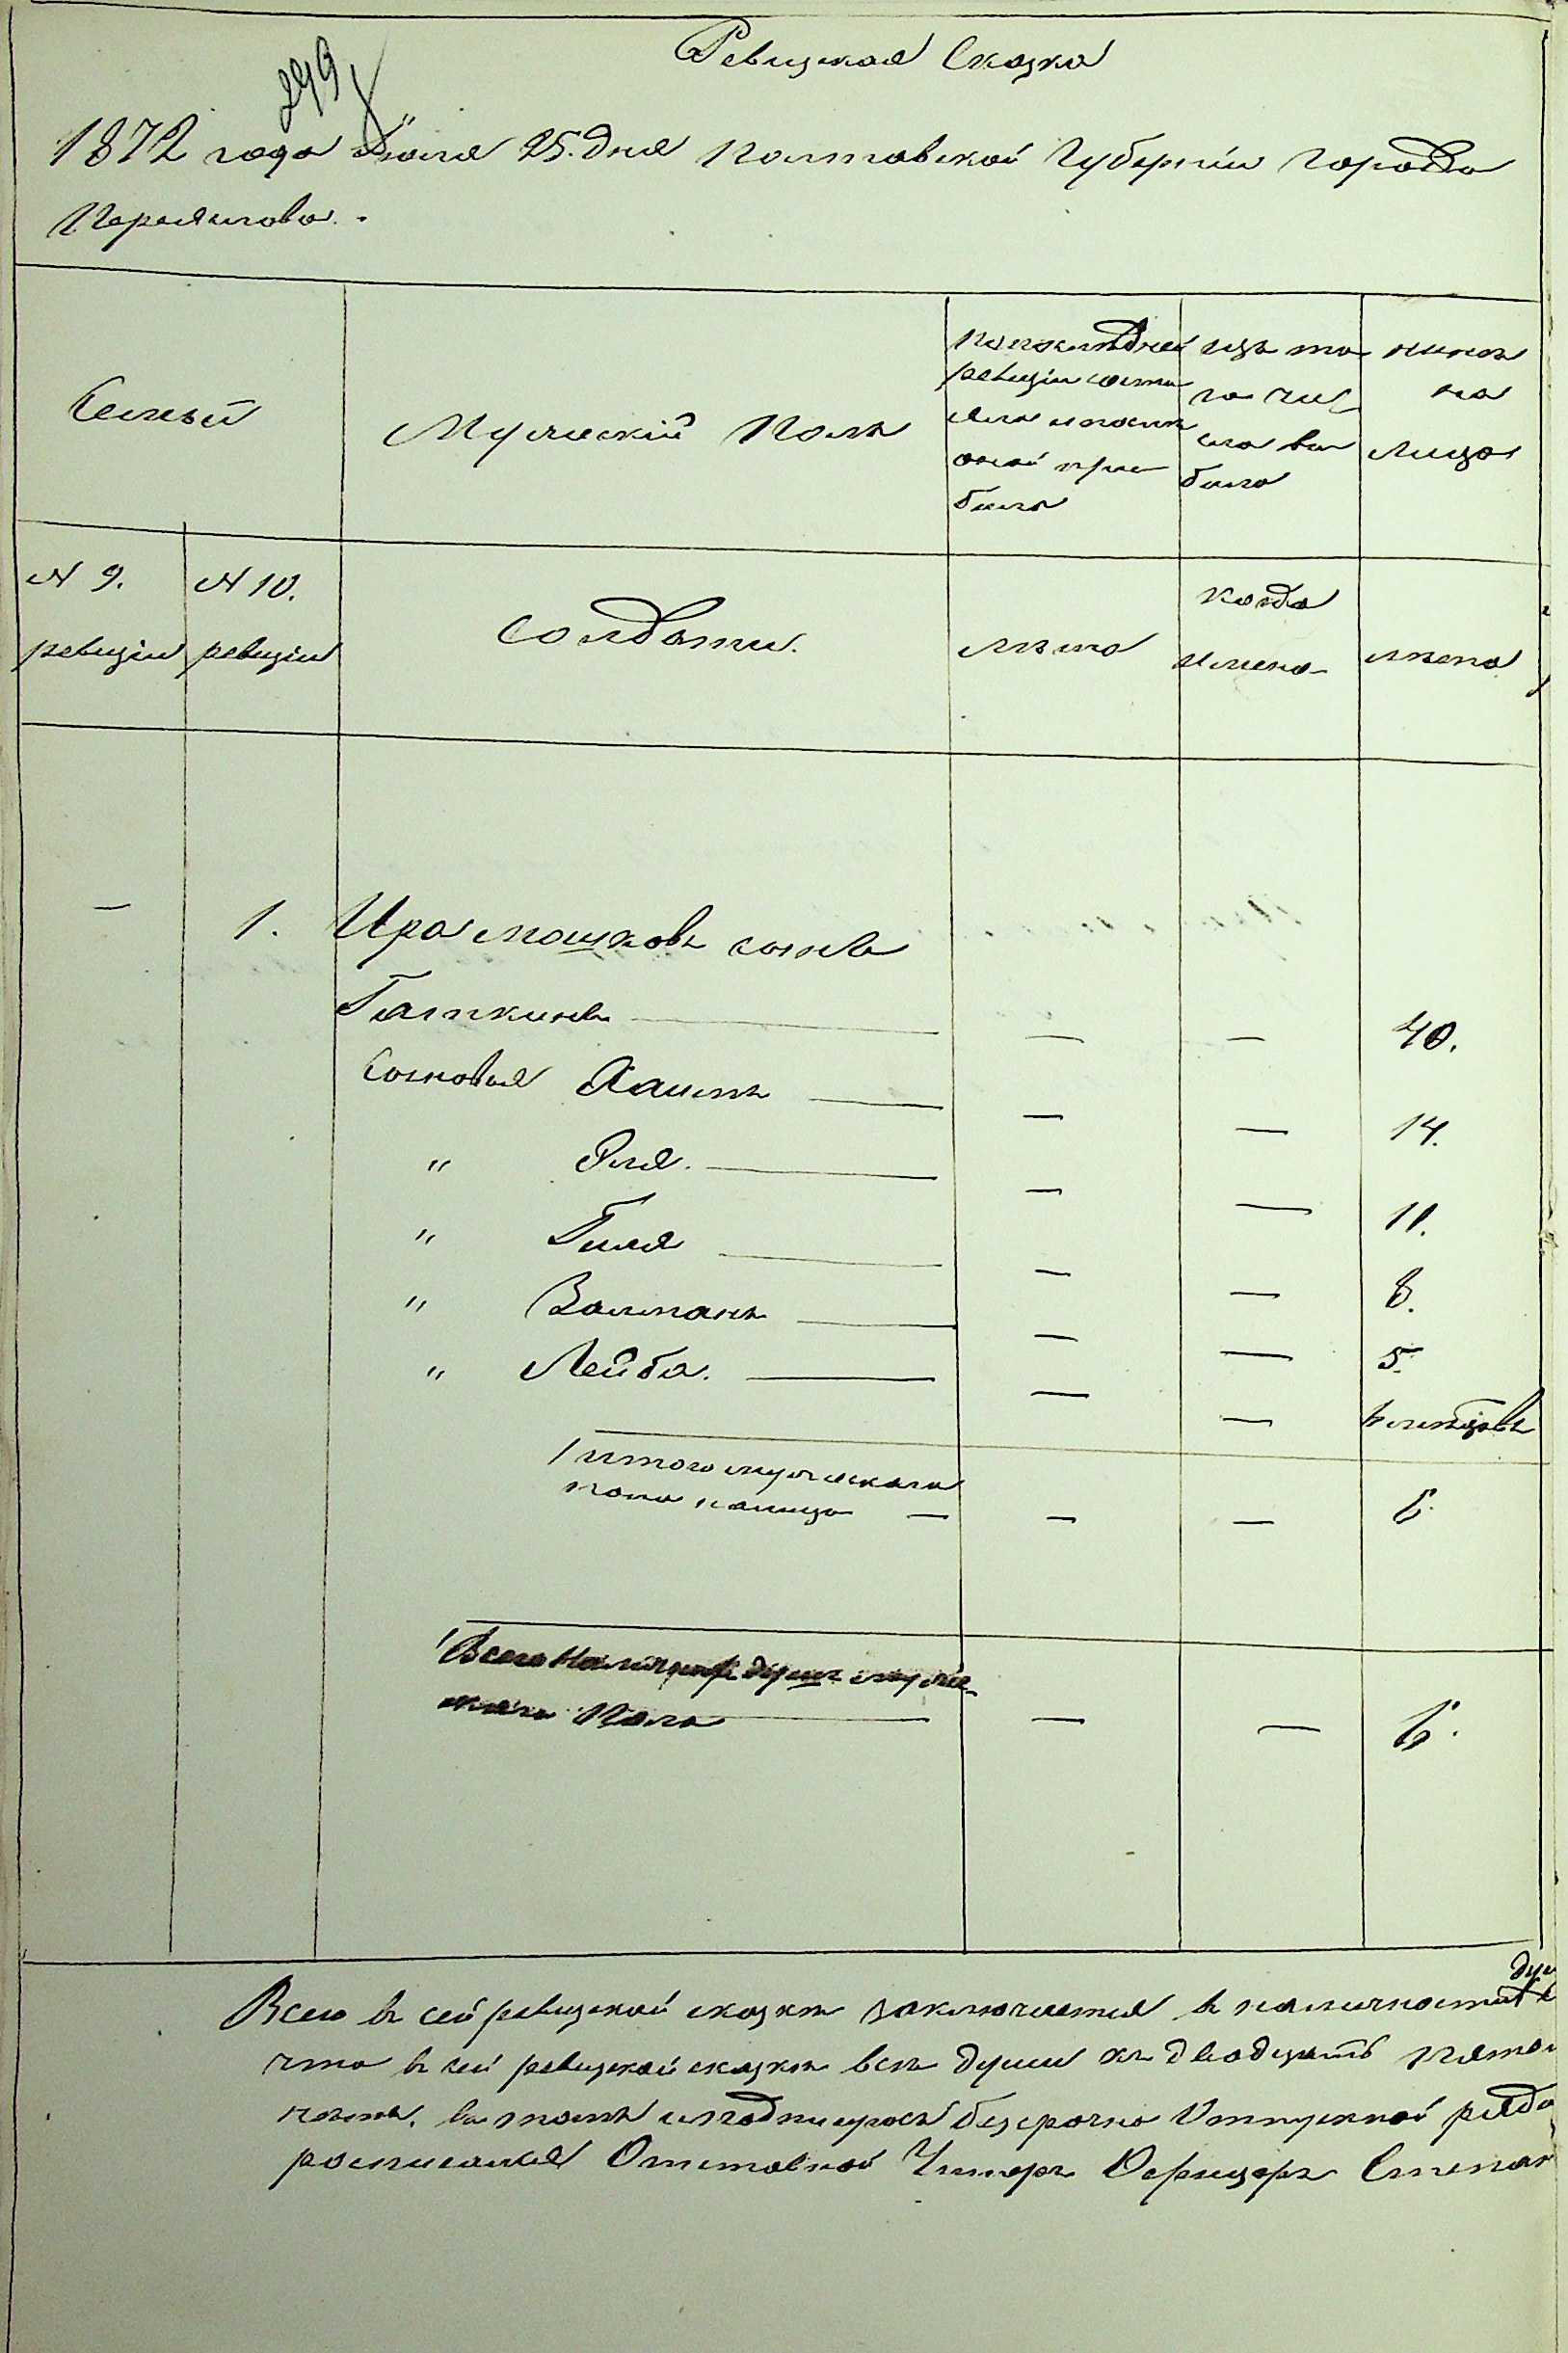 299
Ревизская Сказка
1872 года Іюля 25. дня Полтавской Губерніи города
Переяслова.
Семьи
Мужескій Полъ
По последней ревизіи состояло и после оной прибыло
изъ того числа выбыло
ныне на лицо
N 9. ревизіи
N 10. ревизіи
Солдаты.
лета
когда имено
лета
—
1. Ира Мошковъ сынъ
Гаткинъ — — — 40.
Сыновья Хаимъ — — — 14.
" Эля. — — — 11.
" Гиля — — — 8.
" Залманъ — — — 5.
" Лейба. — — — 6 месяцовъ
Итого мужескаго
пола налицо — — — 6.
Всего наличныхъ душъ муже-
скаго Пола — — 6.
душ
Всего въ сей ревизской сказке заключается въ наличности
что въ сей ревизской сказке все души къ двадцать пято
въ томъ и подписуюсь безсрочно Отпускной рядо
росписался Отставной Унтеръ Офицеръ Степан